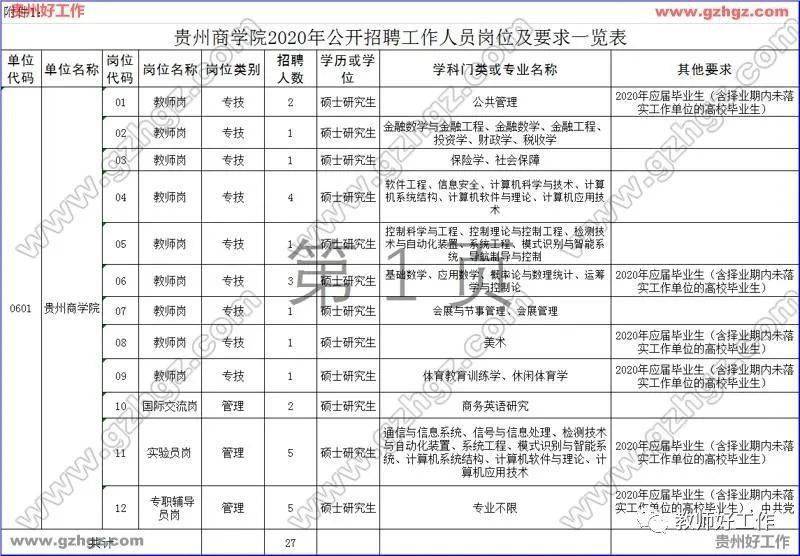 附件1: 贵州好工作 www.gzhgz.com
贵州商学院2020年公开招聘工作人员岗位及要求一览表
单位代码 单位名称 岗位代码 岗位名称 岗位类别 招聘人数 学历或学位 学科门类或专业名称 其他要求
0601 贵州商学院
01 教师岗 专技 2 硕士研究生 公共管理 2020年应届毕业生（含择业期内未落
实工作单位的高校毕业生）
02 教师岗 专技 1 硕士研究生 金融数学与金融工程、金融数学、金融工程、
投资学、财政学、税收学
03 教师岗 专技 1 硕士研究生 保险学、社会保障
04 教师岗 专技 4 硕士研究生 软件工程、信息安全、计算机科学与技术、计算
机系统结构、计算机软件与理论、计算机应用技
术
05 教师岗 专技 1 硕士研究生 控制科学与工程、控制理论与控制工程、检测技
术与自动化装置、系统工程、模式识别与智能系
统、导航制导与控制
06 教师岗 专技 3 硕士研究生 基础数学、应用数学、概率论与数理统计、运筹
学与控制论 2020年应届毕业生（含择业期内未落
实工作单位的高校毕业生）
07 教师岗 专技 1 硕士研究生 会展与节事管理、会展管理
08 教师岗 专技 1 硕士研究生 美术 2020年应届毕业生（含择业期内未落
实工作单位的高校毕业生）
09 教师岗 专技 1 硕士研究生 体育教育训练学、休闲体育学 2020年应届毕业生（含择业期内未落
实工作单位的高校毕业生）
10 国际交流岗 管理 2 硕士研究生 商务英语研究
11 实验员岗 管理 5 硕士研究生 通信与信息系统、信号与信息处理、检测技术
与自动化装置、系统工程、模式识别与智能系
统、计算机系统结构、计算机软件与理论、计
算机应用技术 2020年应届毕业生（含择业期内未落
实工作单位的高校毕业生）
12 专职辅导
员岗 管理 5 硕士研究生 专业不限 2020年应届毕业生（含择业期内未落
实工作单位的高校毕业生），中共党
共计 27
第 1 页
www.gzhgz.com
教师好工作
贵州好工作